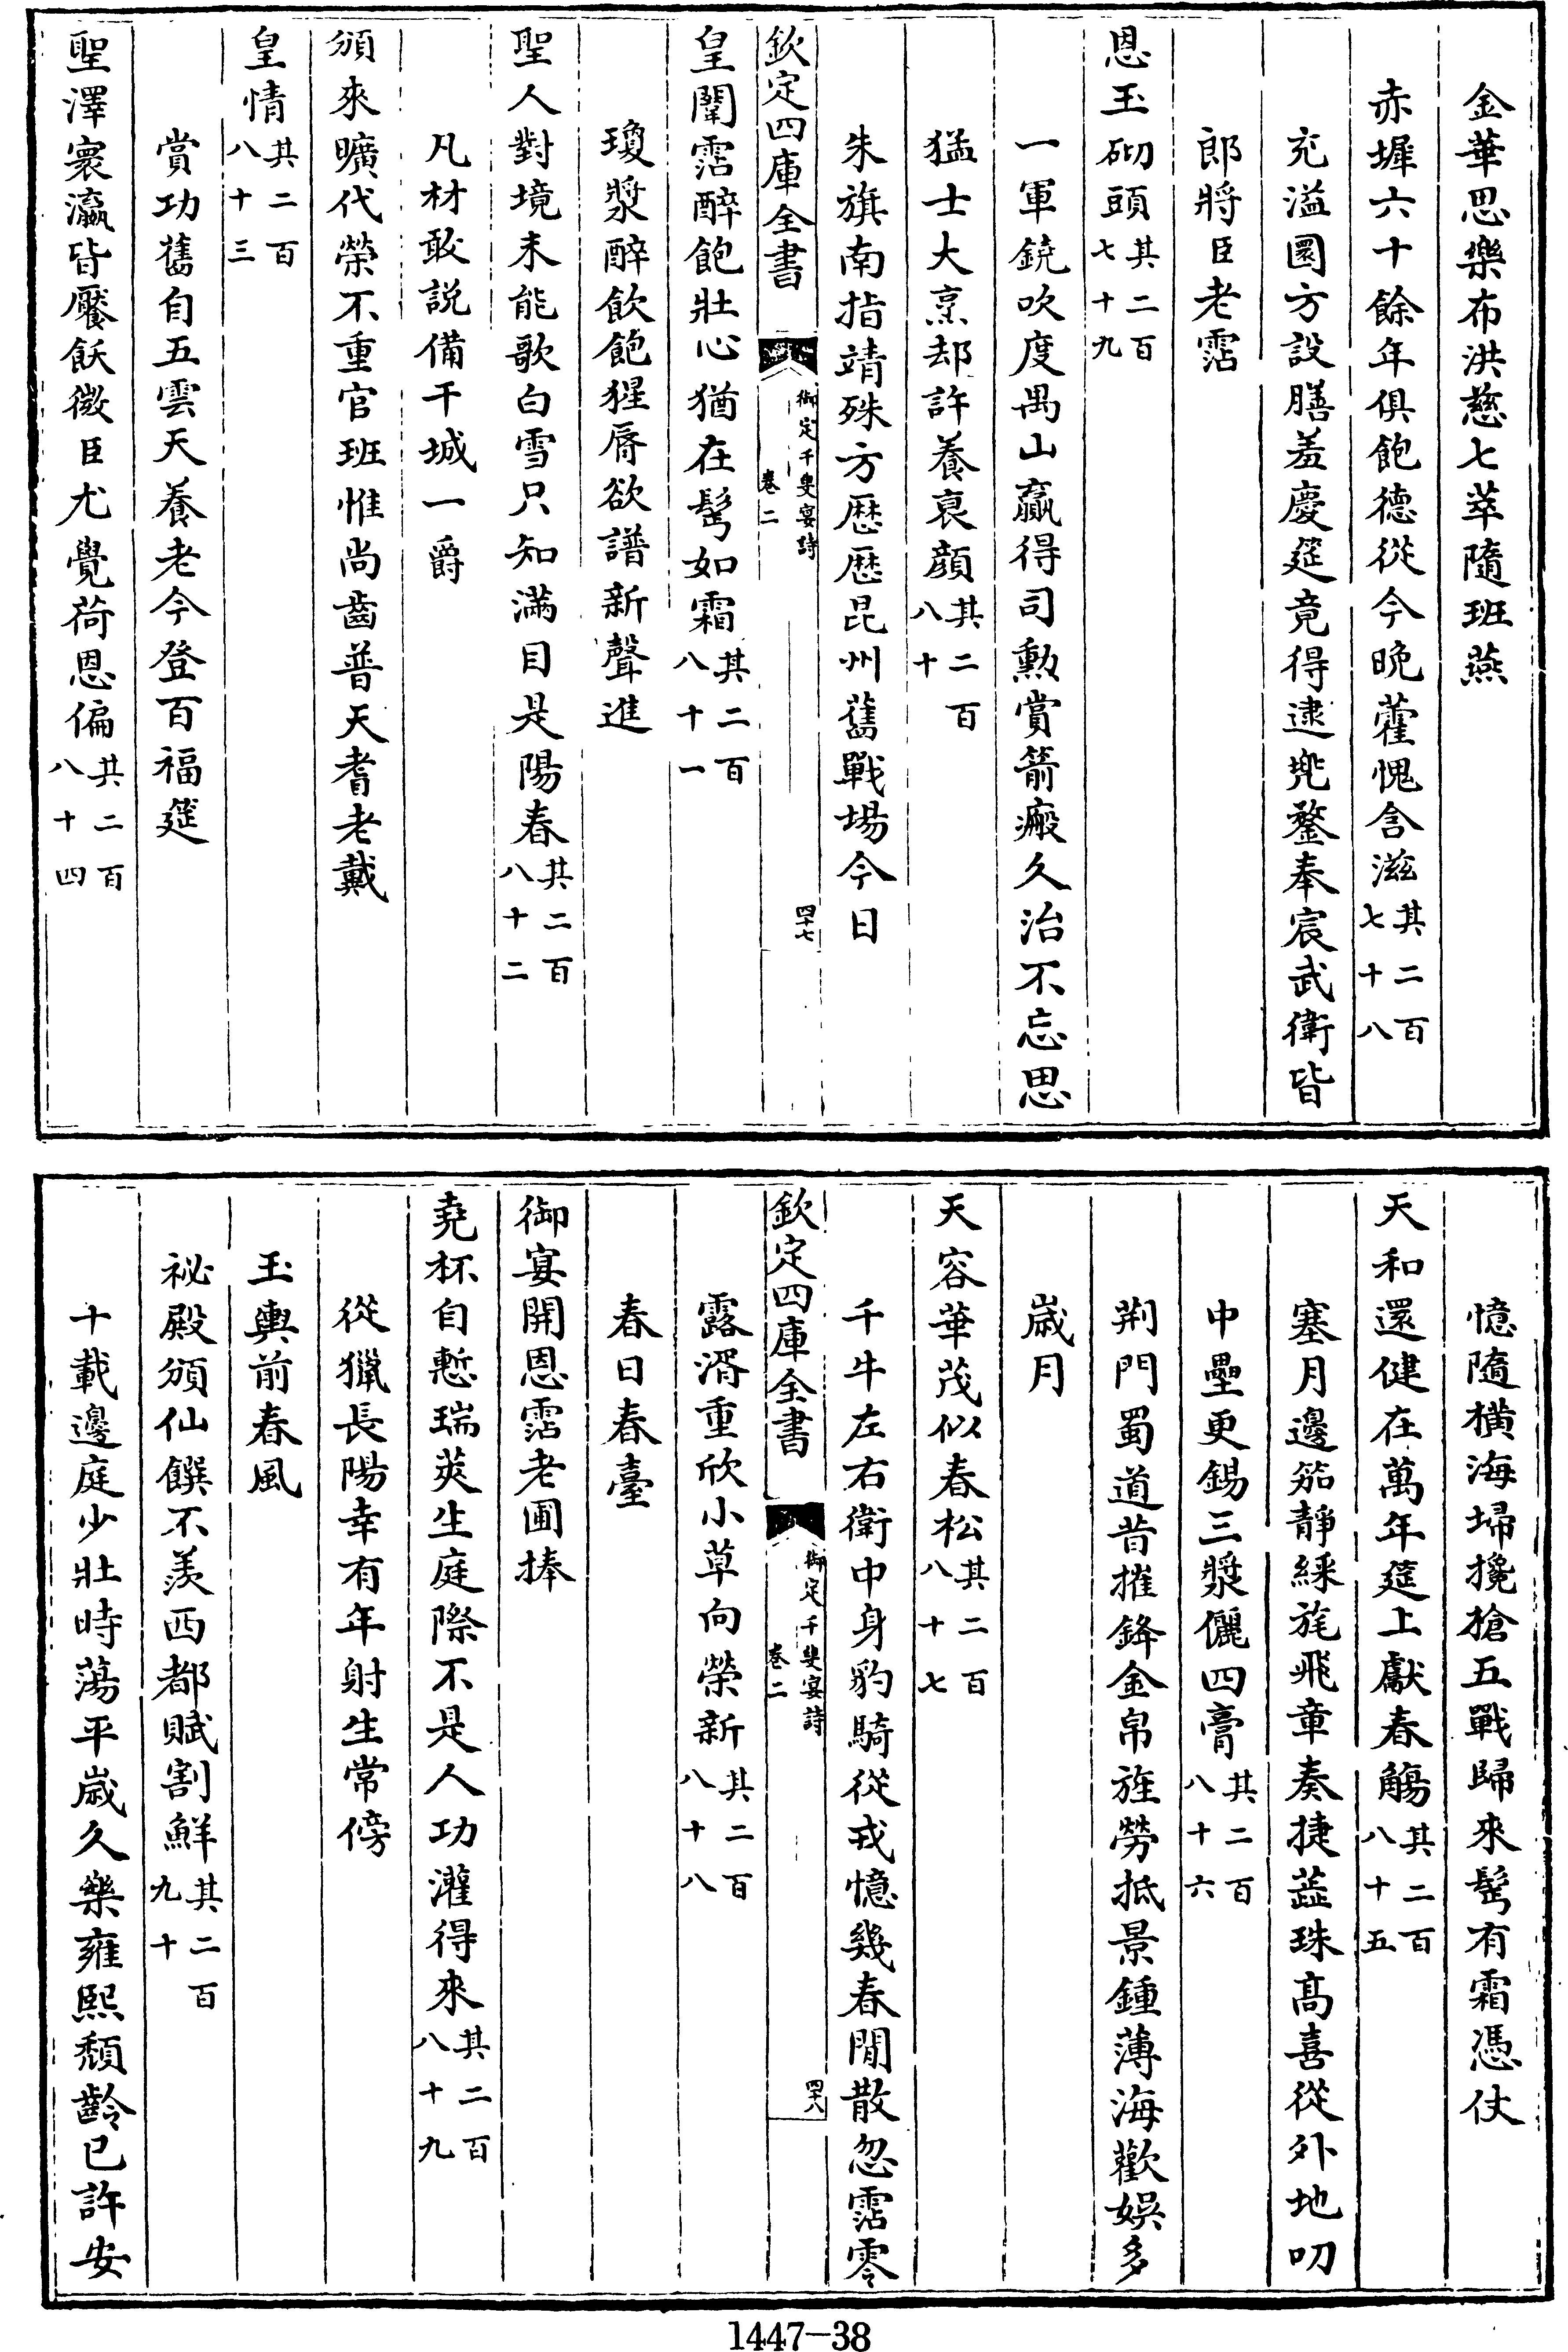 金華思樂布洪慈七萃隨班燕
赤墀六十餘年俱飽德從今晚藿愧含滋其二百七十八
充溢圜方設膳羞慶筵竟得逮兜鍪奉宸武衛皆
郎將臣老霑
恩玉砌頭其二百七十九
一軍鐃吹度禺山贏得司勲賞箭瘢久治不忘思
猛士大烹却許養衰顔其二百八十
朱旗南指靖殊方歴歴昆州舊戰場今日
欽定四庫全書
御定千叟宴詩
卷二
四十七
皇闈霑醉飽壯心猶在髩如霜其二百八十一
瓊漿醉飲飽猩脣欲譜新聲進
聖人對境未能歌白雪只知滿目是陽春其二百八十二
凡材敢説備干城一爵
頒來曠代榮不重官班惟尚齒普天耆老戴
皇情其二百八十三
賞功舊自五雲天養老今登百福筵
聖澤寰瀛皆饜飫微臣尤覺荷恩偏其二百八十四
憶隨橫海埽攙槍五戰歸來髩有霜憑仗
天和還健在萬年筵上獻春觴其二百八十五
塞月邊笳靜綵旄飛章奏捷蕋珠髙喜從外地叨
中壘更錫三漿儷四膏其二百八十六
荆門蜀道昔摧鋒金帛旌勞抵景鍾薄海歡娯多
嵗月
天容華茂似春松其二百八十七
千牛左右衛中身豹騎從戎憶幾春閒散忽霑零
欽定四庫全書
御定千叟宴詩
卷二
四十八
露湑重欣小草向榮新其二百八十八
春日春臺
御宴開恩霑老圃捧
堯杯自慙瑞莢生庭際不是人功灌得來其二百八十九
從獵長陽幸有年射生常傍
玉輿前春風
祕殿頒仙饌不羨西都賦割鮮其二百九十
十載邊庭少壯時蕩平嵗久樂雍熙頽齡已許安
1447-38